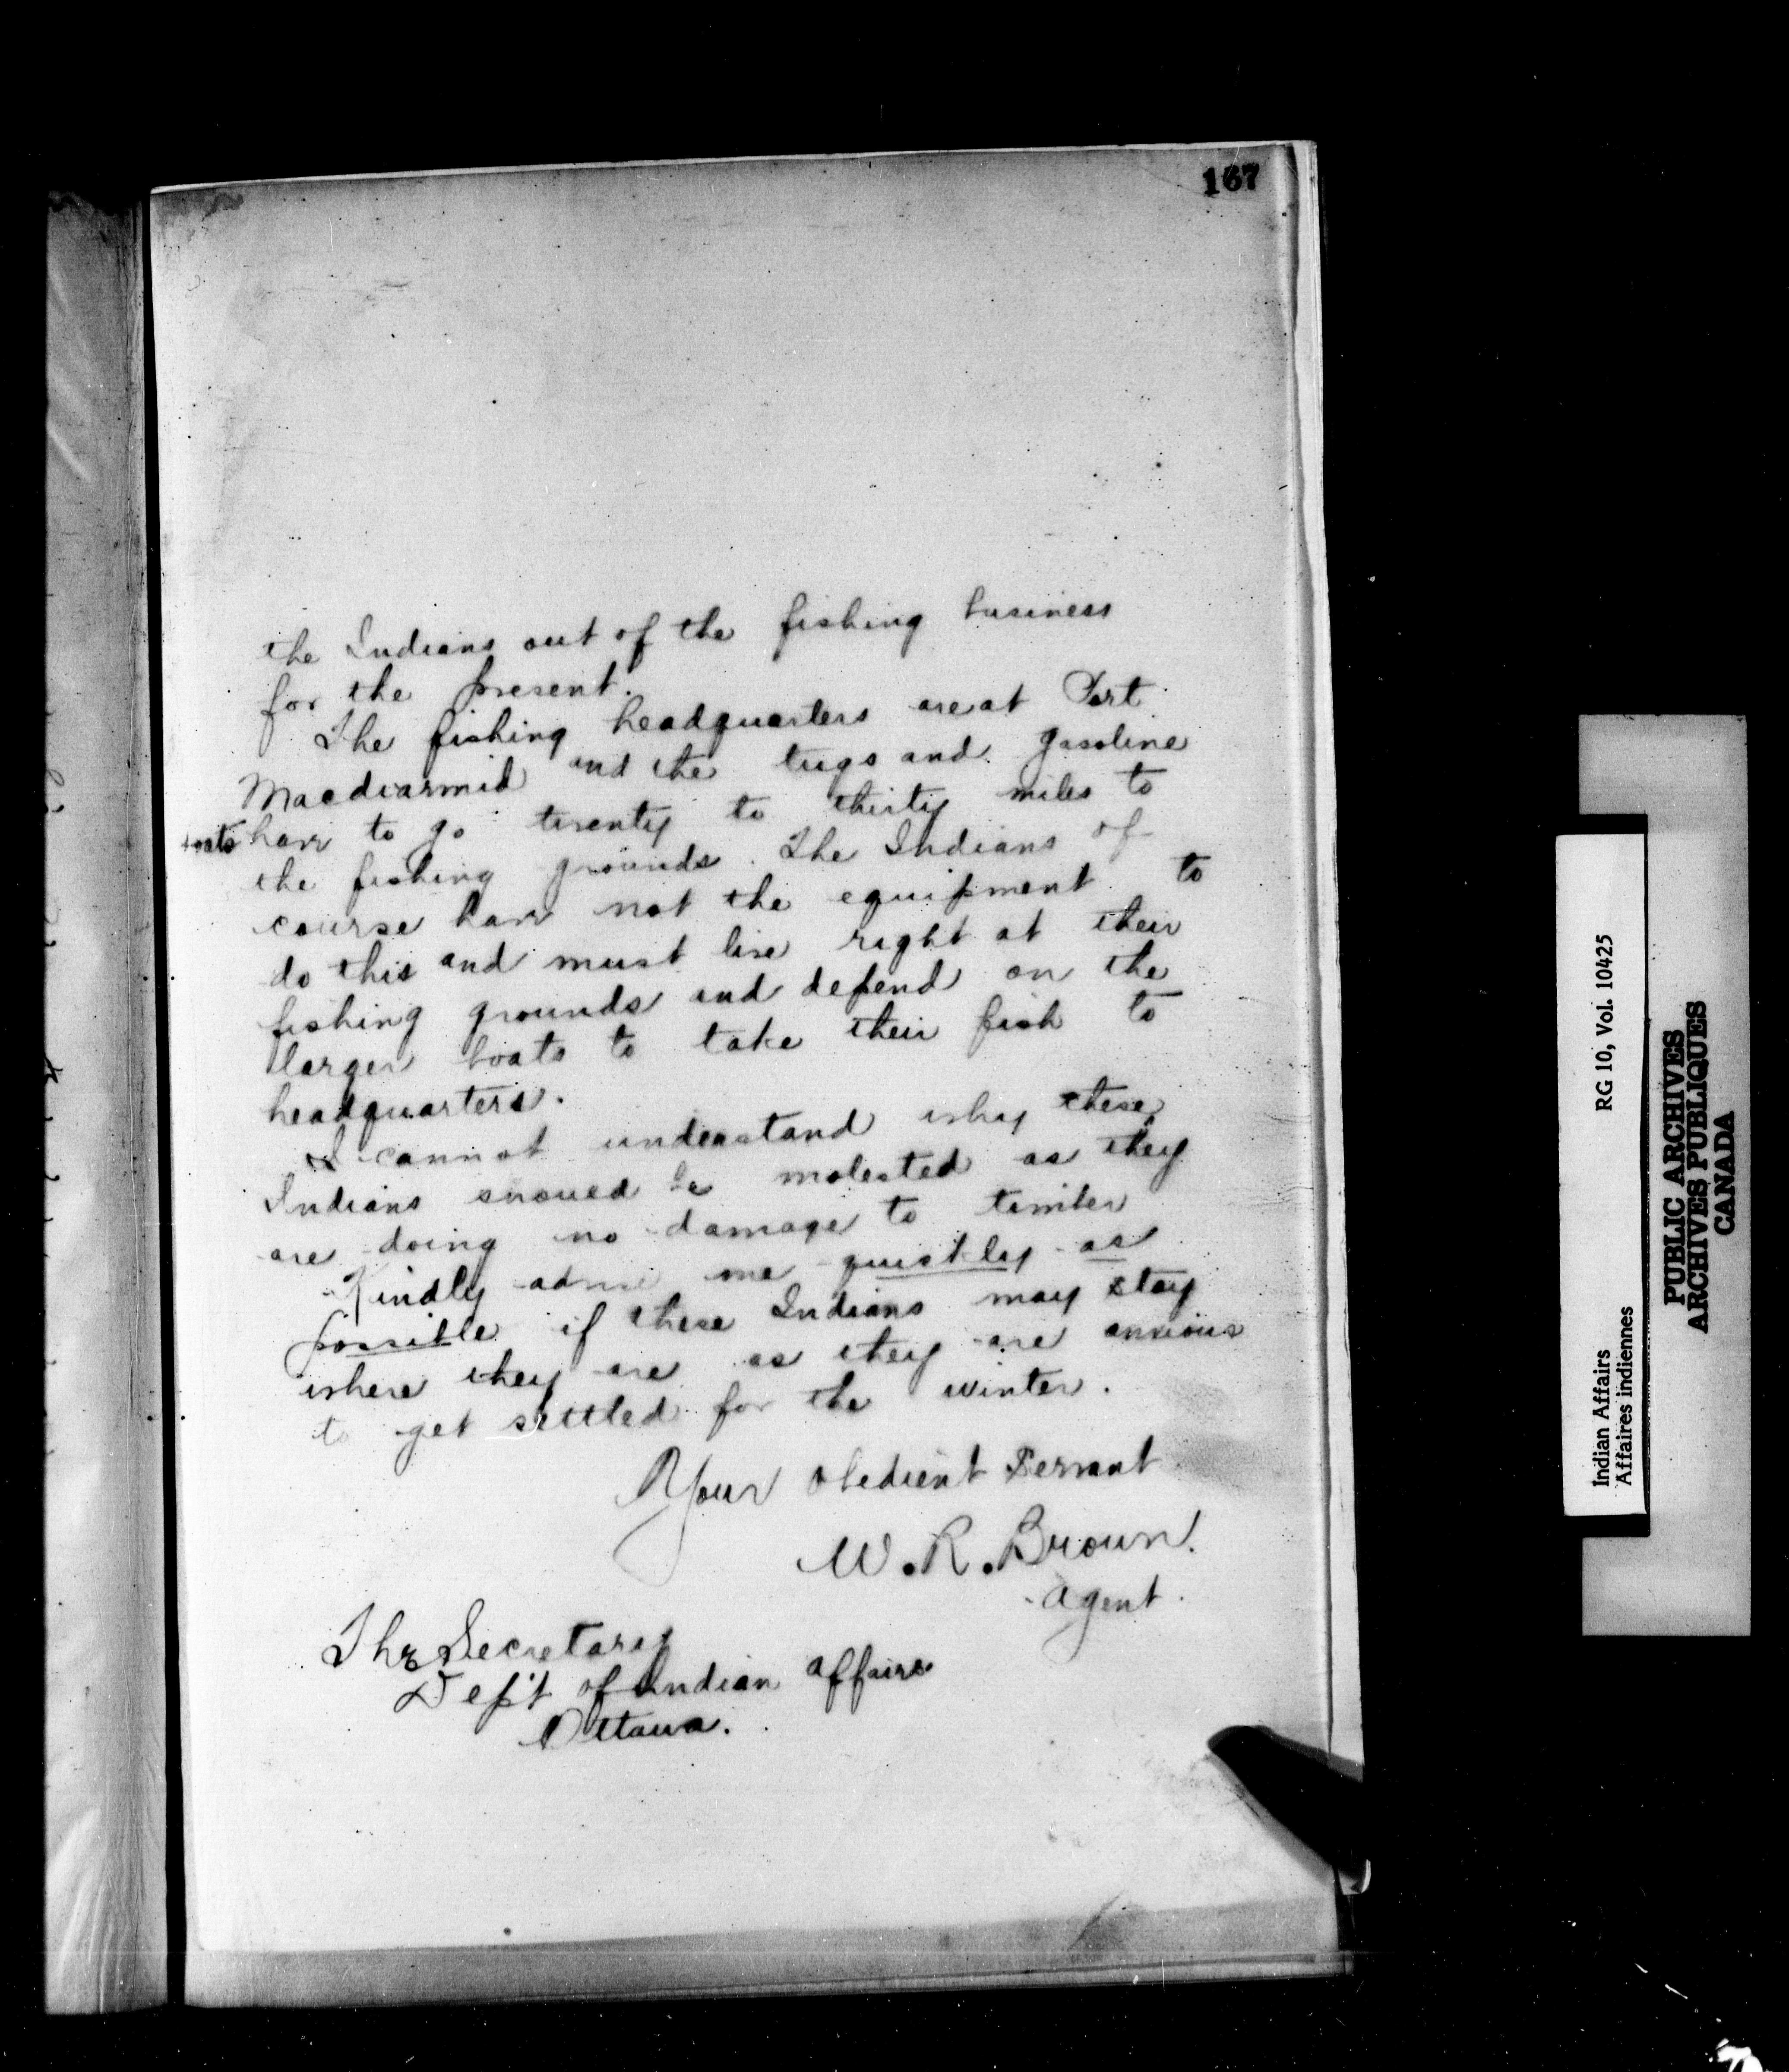 167
the Indians out of the fishing business
for the present.
The fishing headquarters are at Port
Macdiarmid and the tugs and gasoline
boats have to go twenty to thirty miles to
the fishing grounds. The Indians of
course have not the equipment to
do this and must live right at their
fishing grounds and depend on the
larger boats to take their fish to
headquarters.
I cannot understand why these
Indians should be molested as they
are doing no damage to timber
Kindly advise me quickly as
possible if these Indians may stay
where they are as they are anxious
to get settled for the winter.
Your obedient Servant
W. R. Brown.
Agent.
The Secretary
Dep't of Indian Affairs
Ottawa.
Indian Affairs RG 10, Vol. 10425
Affaires indiennes
PUBLIC ARCHIVES
ARCHIVES PUBLIQUES
CANADA